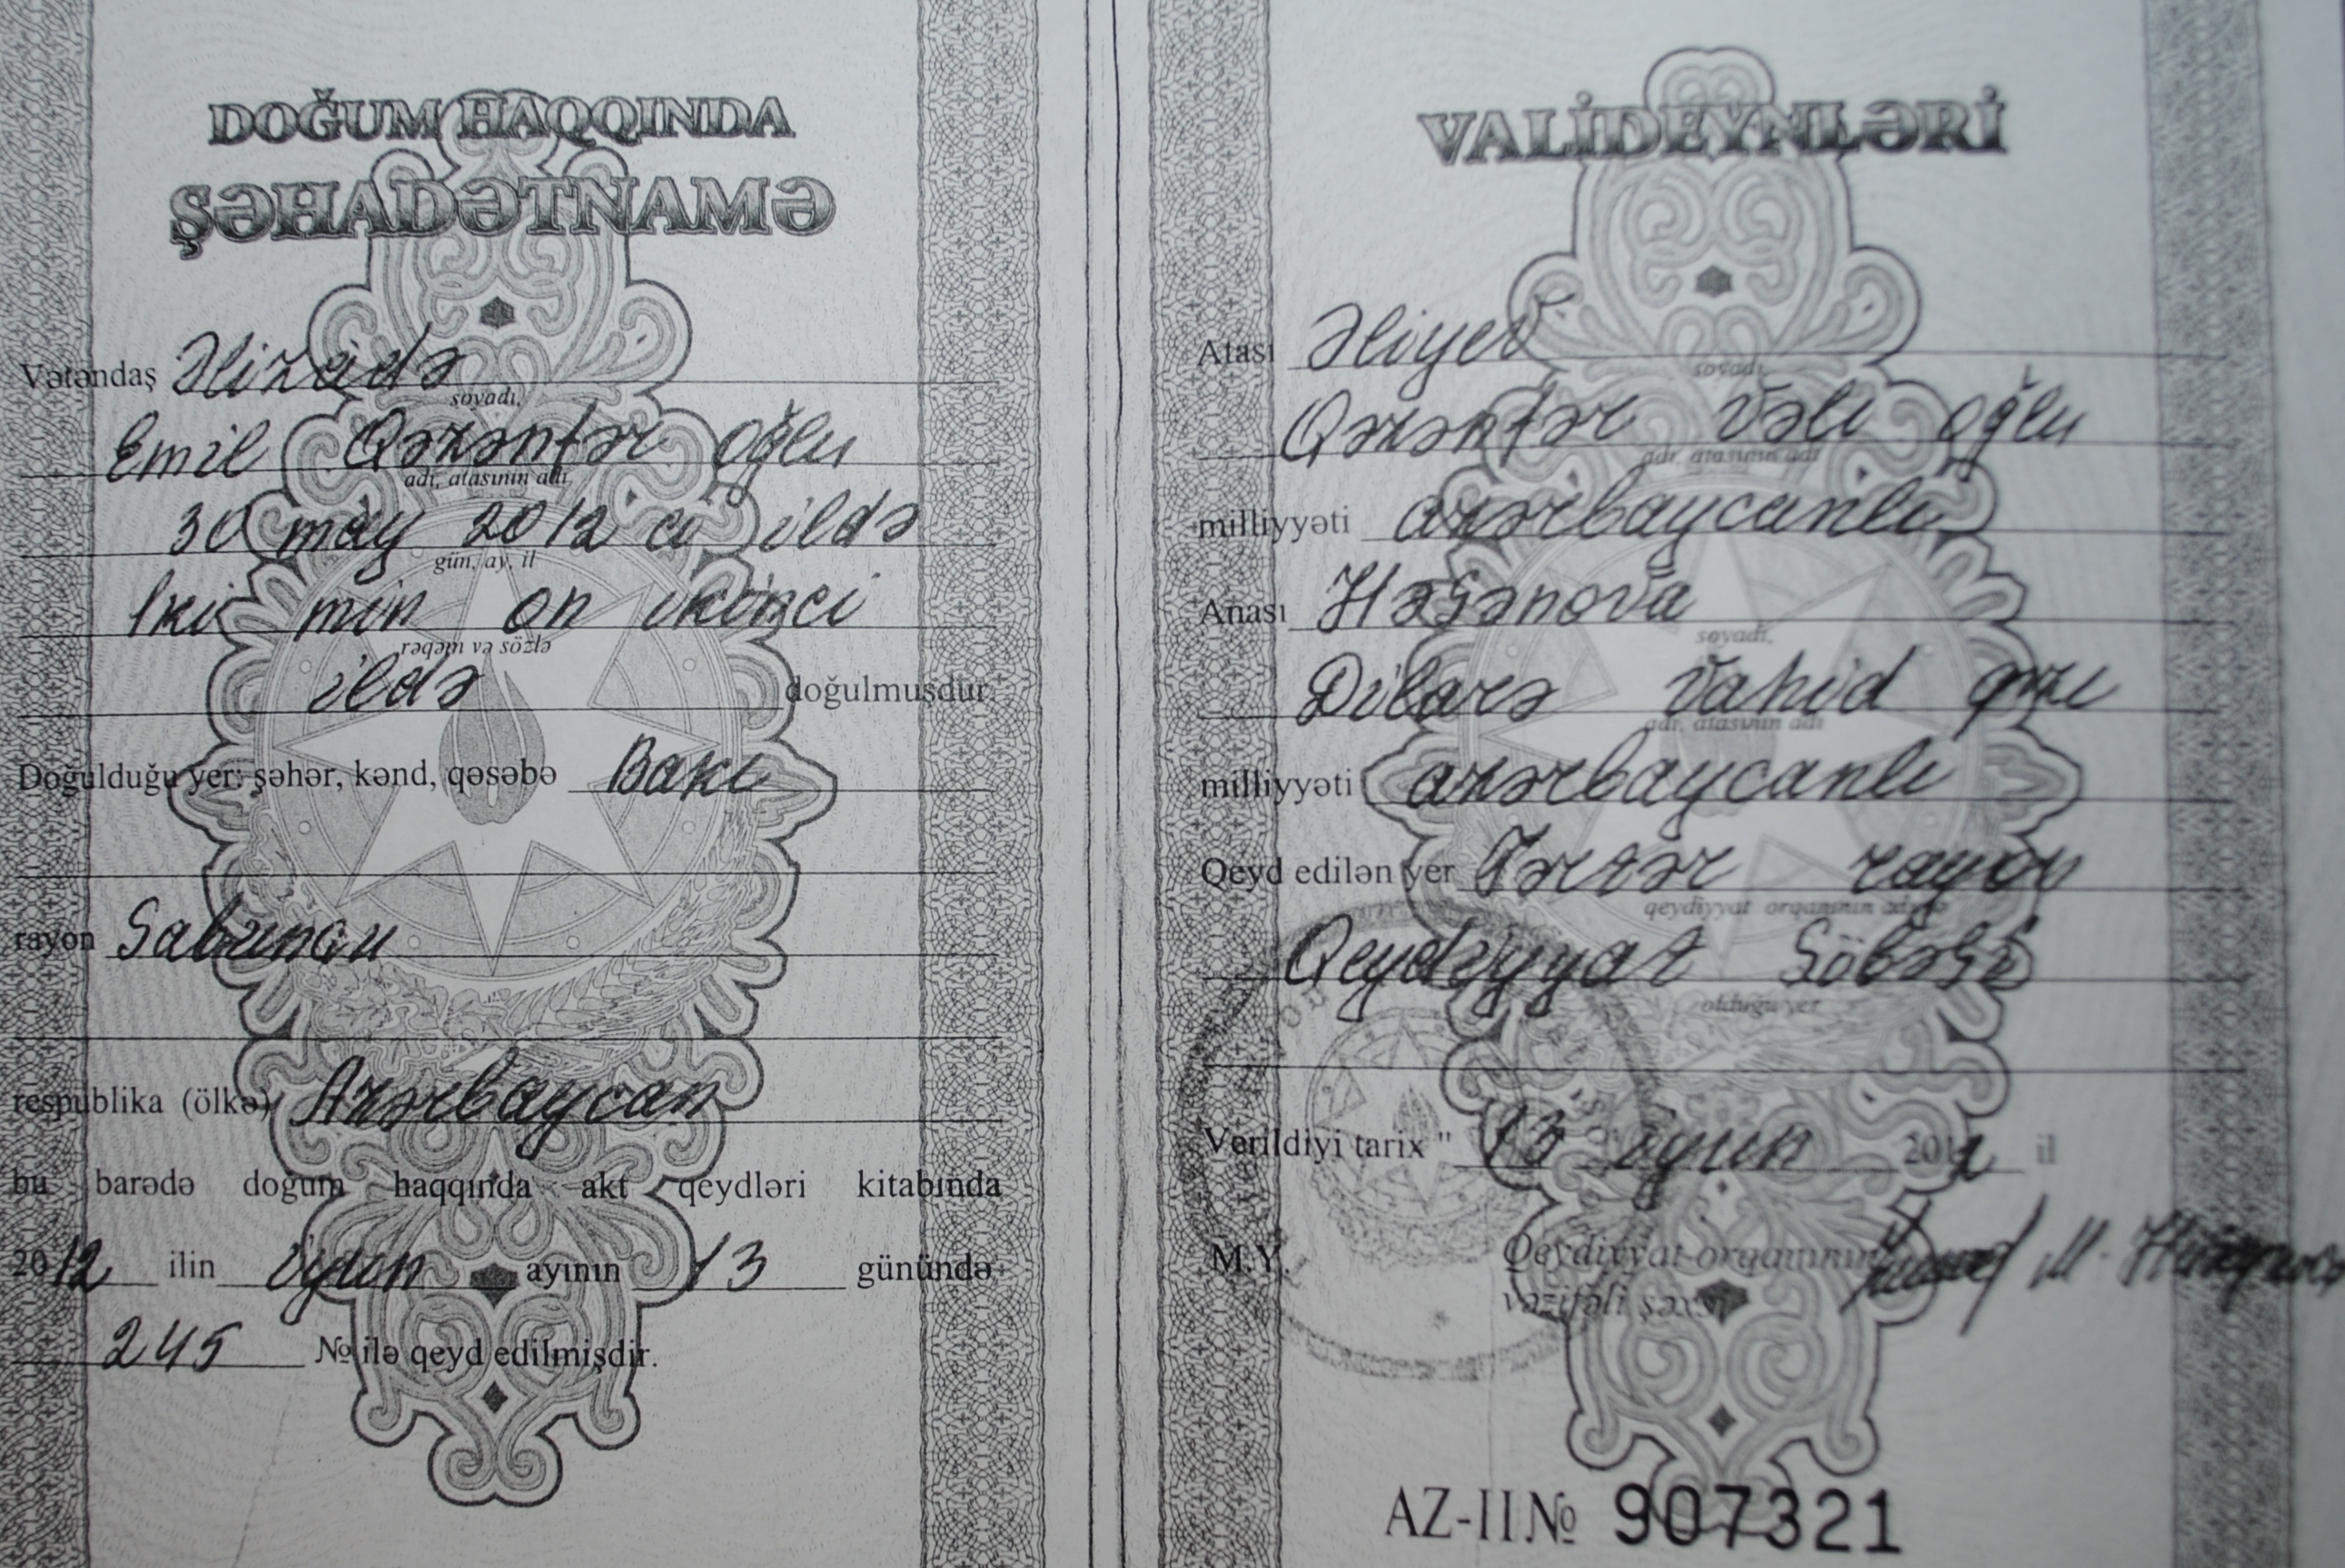 DOĞUM HAQQINDA
ŞƏHADƏTNAMƏ
Vətəndaş Əlizadə
soyadı,
Emil Qəzənfər oğlu
adı, atasının adı
30 may 2012 ci ildə
gün, ay, il
İki min on ikinci
rəqəm və sözlə
ildə doğulmuşdur
Doğulduğu yer: şəhər, kənd, qəsəbə Bakı
rayon Sabunçu
respublika (ölkə) Azərbaycan
bu barədə doğum haqqında akt qeydləri kitabında
2012 ilin iyun ayının 13 günündə
245 № ilə qeyd edilmişdir.
VALİDEYNLƏRİ
Atası Əliyev
soyadı,
Qəzənfər Vəli oğlu
adı, atasının adı
milliyyəti azərbaycanlı
Anası Həsənova
soyadı,
Dilarə Vahid qızı
adı, atasının adı
milliyyəti azərbaycanlı
Qeyd edilən yer Tərtər rayon
qeydiyyat orqanının adı və
Qeydiyyat Şöbəsi
olduğu yer
Verildiyi tarix " 13 iyun 2012 il
M.Y. Qeydiyyat orqanının
vəzifəli şəxsi
AZ-II № 907321